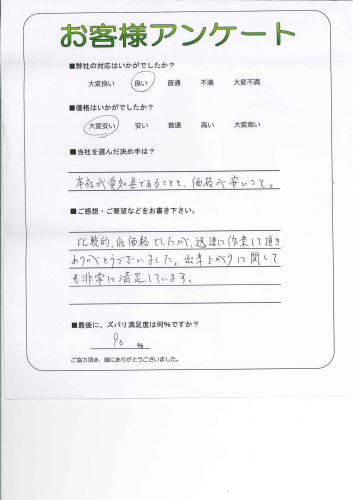 お客様アンケート
■弊社の対応はいかがでしたか？
大変良い 良い 普通 不満 大変不満
■価格はいかがでしたか？
大変安い 安い 普通 高い 大変高い
■当社を選んだ決め手は？
本社が愛知県であることと、価格が安いこと。
■ご感想・ご要望などをお書き下さい。
比較的、低価格でしたが、迅速に作業して頂き
ありがとうございました。出来上がりに関して
も非常に満足しています。
■最後に、ズバリ満足度は何％ですか？
90 %
ご協力頂き、誠にありがとうございました。